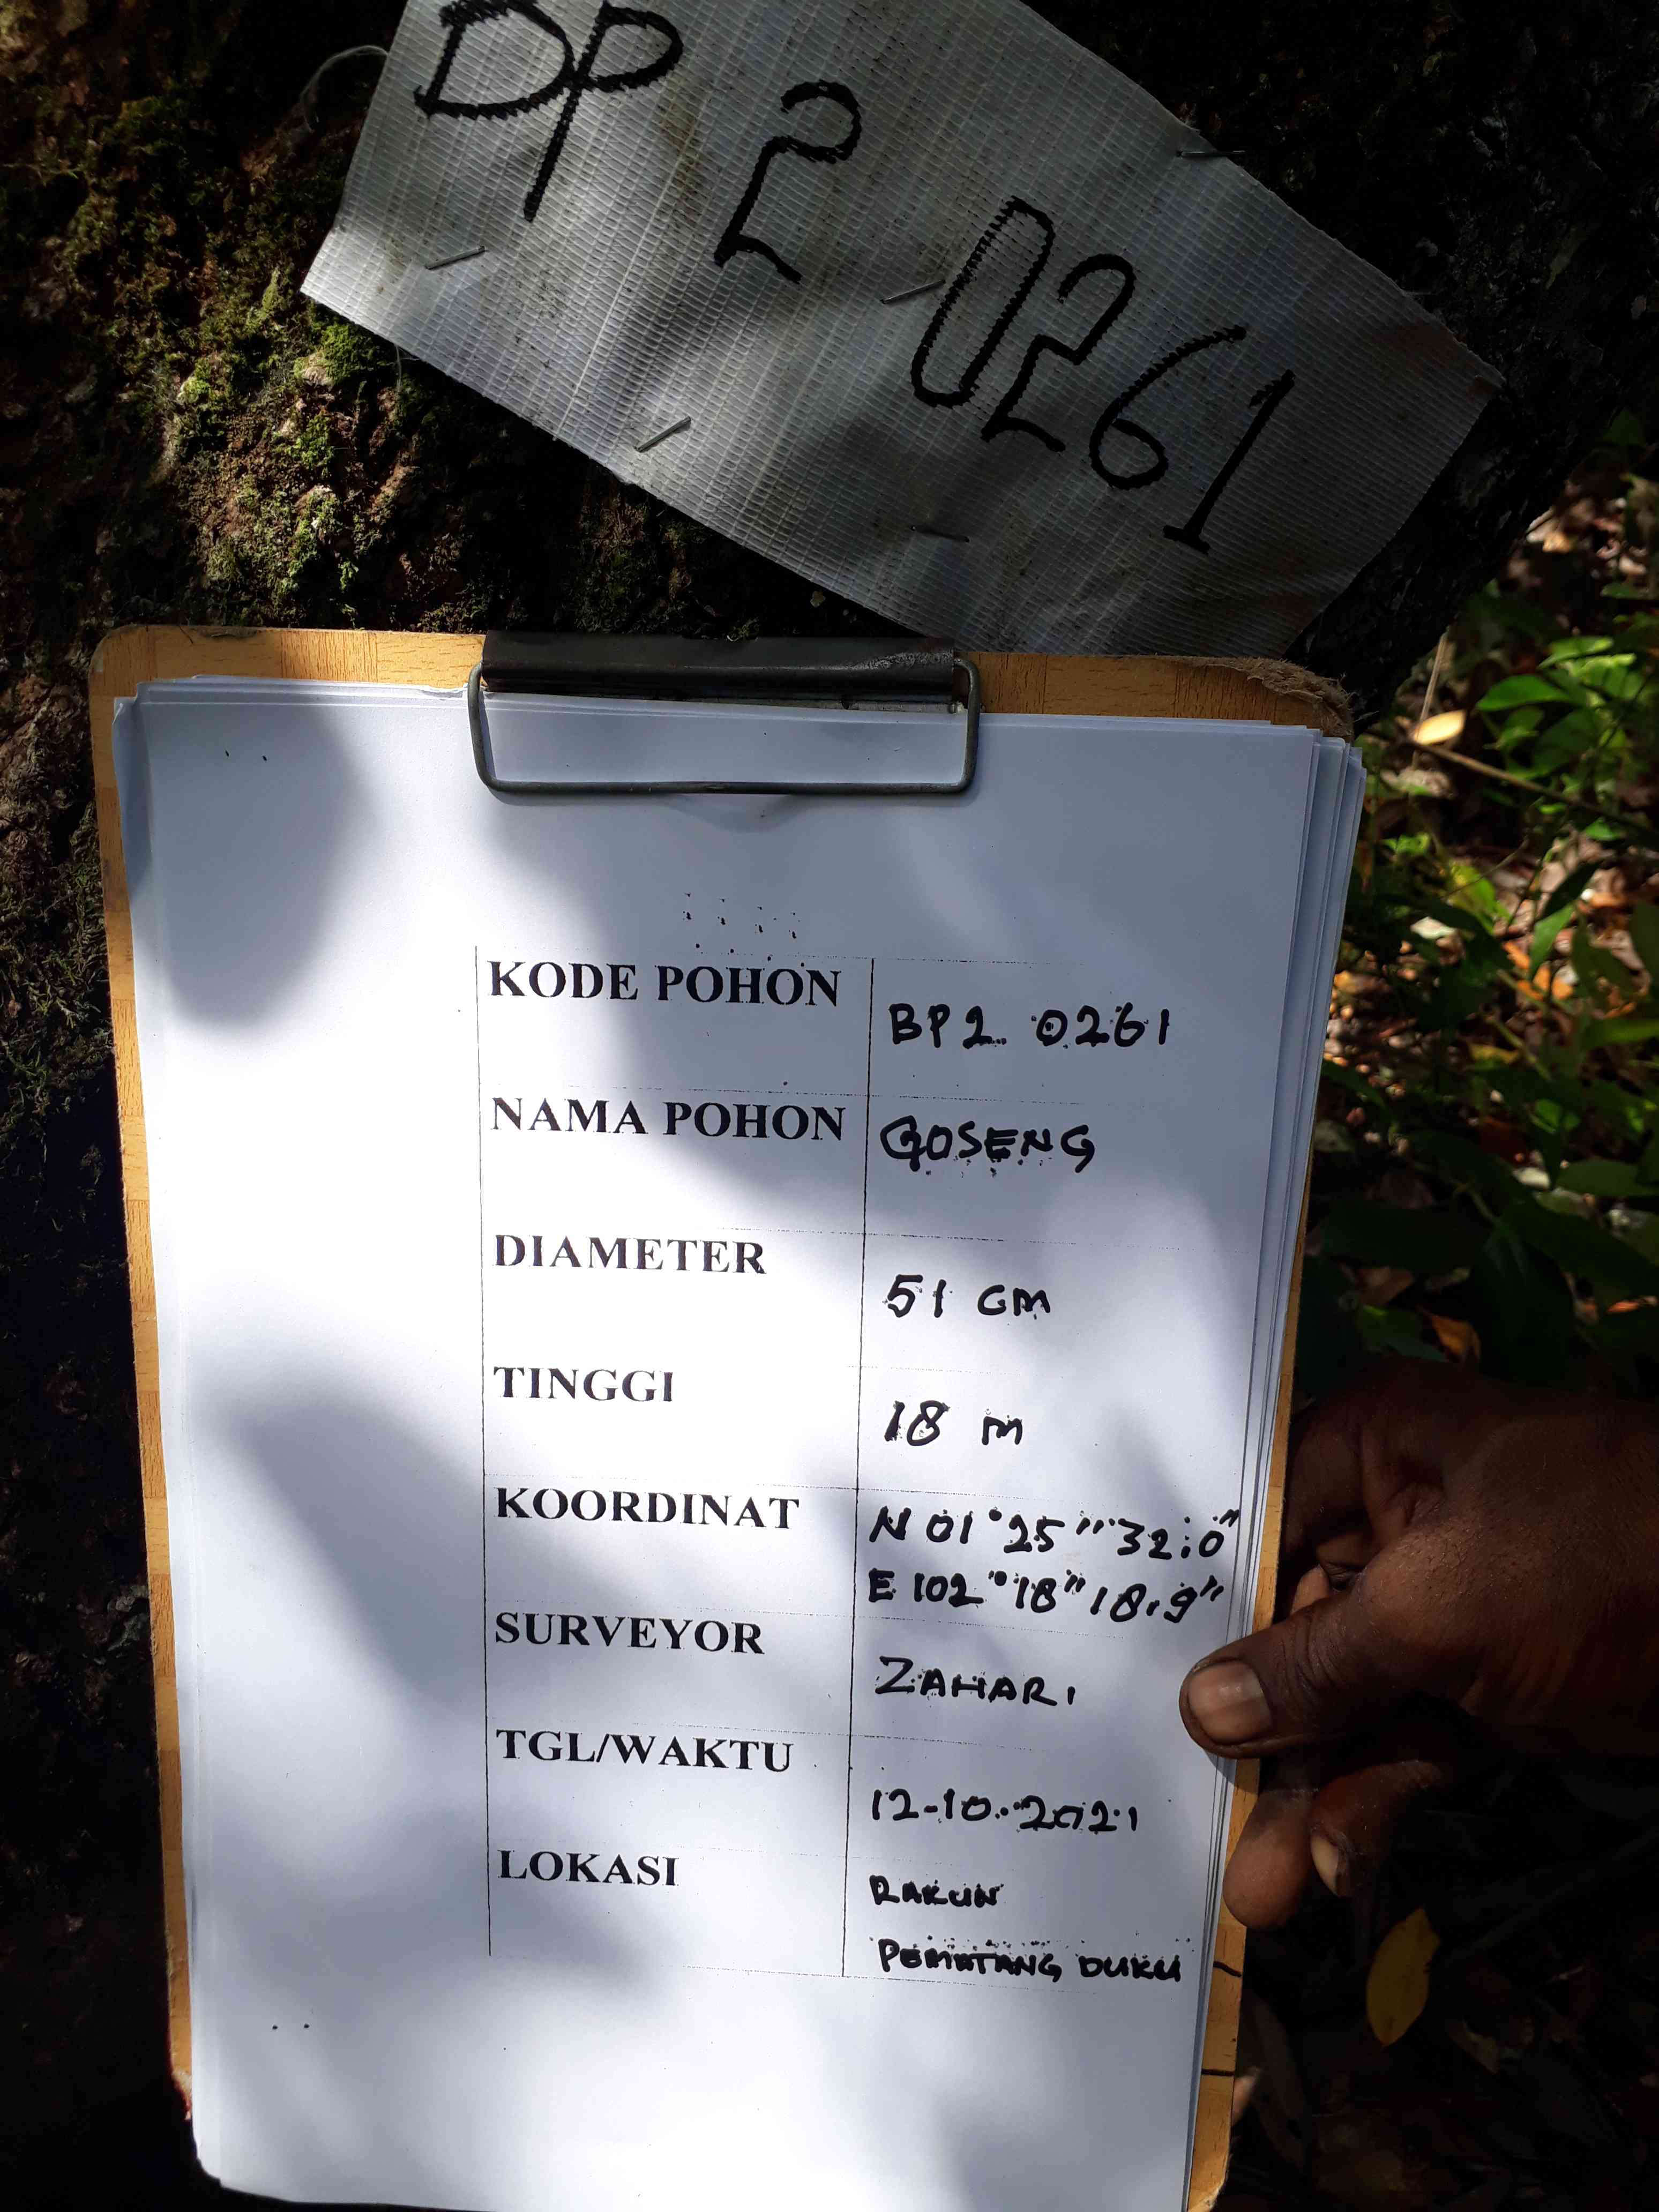 DP 2 0261
KODE POHON BP2 0261
NAMA POHON GOSENG
DIAMETER 51 cm
TINGGI 18 m
KOORDINAT N 01°25"32.0"
E 102°18"18.9"
SURVEYOR ZAHARI
TGL/WAKTU 12-10-2021
LOKASI RAKUN
PEMATANG DUKU